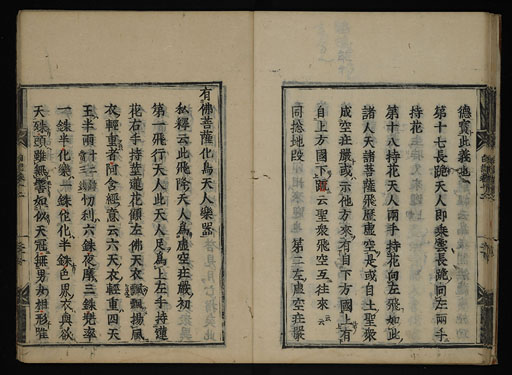 德寶此義也
第十七長跪天人即乘雲長跪向左兩手
持花
第十八持花天人兩手持花向左飛如此
諸人天諸菩薩飛歷虛空是或自土聖衆
成空在嚴或示他方來有自下方國上有
自上方國下䟽云聖衆飛空互往來云
同捻地段 第二左虛空在嚴
有佛菩薩化鳥天人樂器
私釋云此飛除天人爲虛空在嚴初
第一飛行天人此天人足爲上左手持蓮
花右手持莖蓮花傾左佛天衣飄颺揚風
衣輕重者阿含經意云六天衣輕重四天
王半兩忉利六銖夜魔三銖兜率
一銖半化樂一銖他化半銖色界衣與欲
天銖頭雖無髻如似天冠無男女推形雖